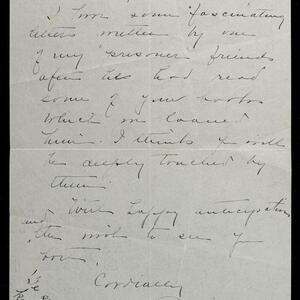 I have some fascinating
letters written by one
of my "prisoner friends
after he had read
some of your books
which we loaned
him. I think you will
be deeply touched by
them.
With happy anticipation
and the wish to see you
both.
Cordially